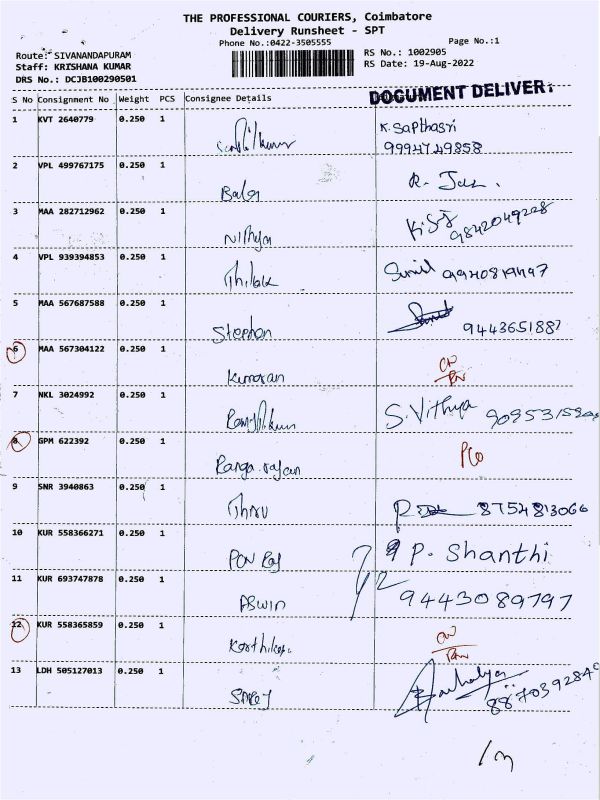 THE PROFESSIONAL COURIERS, Coimbatore
Delivery Runsheet - SPT
Phone No.:0422-3505555 Page No.:1
Route: SIVANANDAPURAM RS No.: 1002905
Staff: KRISHANA KUMAR RS Date: 19-Aug-2022
DRS No.: DCJB100290501
DOCUMENT DELIVERY
S No Consignment No Weight PCS Consignee Details
1 KVT 2640779 0.250 1 K. Sapthasri
9994749858
2 VPL 499767175 0.250 1 Balaj R.
3 MAA 282712962 0.250 1 Nithya 9842049228
4 VPL 939394853 0.250 1 Thilak Sunil
5 MAA 567687588 0.250 1 Stephen 9443651887
6 MAA 567304122 0.250 1 Kumaran
7 NKL 3024992 0.250 1 S. Vithya
8 GPM 622392 0.250 1 Ranga rajan
9 SNR 3940863 0.250 1 Thiru 8754813066
10 KUR 558366271 0.250 1 PON Raj P. Shanthi
11 KUR 693747878 0.250 1 ASWIN 9443089797
12 KUR 558365859 0.250 1
13 LDH 505127013 0.250 1